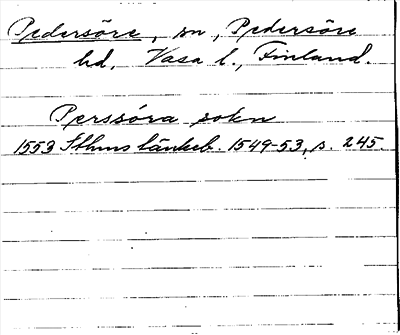 Pedersöre, sn, Pedersöre
hd, Vasa l., Finland.
Perssöra sokn
1553 Sthms tänkeb. 1549-53, s. 245.